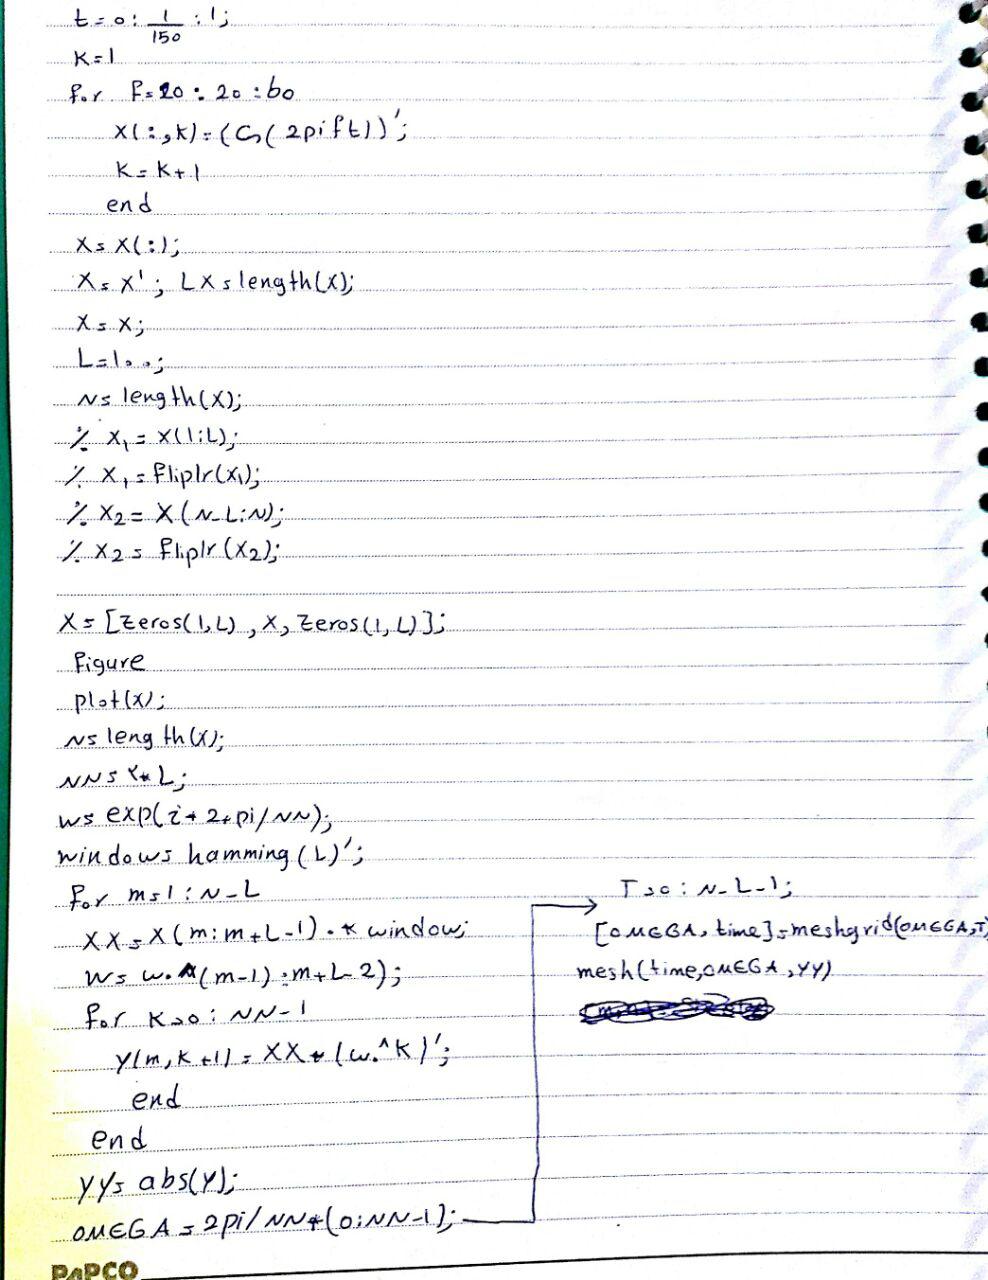 t=0:1/150:1;
K=1
for f=20:20:60
x(:,k)=(Cos(2pift))';
K=K+1
end
X=X(:);
X=X'; LX=length(X);
X=X;
L=100;
N=length(X);
% X1=X(1:L);
% X1=fliplr(X1);
% X2=X(N-L:N);
% X2=fliplr(X2);
X=[zeros(1,L),X,zeros(1,L)];
figure
plot(x);
N=length(x);
NN=2*L;
w=exp(i*2*pi/NN);
window=hamming(L)';
for m=1:N-L
XX=X(m:m+L-1).*window;
W=w.^(m-1):m+L-2);
for K=0:NN-1
Y(m,K+1)=XX*(w.^K)';
end
end
yy=abs(Y);
OMEGA=2pi/NN*(0:NN-1);
T=0:N-L-1;
[OMEGA,time]=meshgrid(OMEGA,T)
mesh(time,OMEGA,YY)
PAPCO